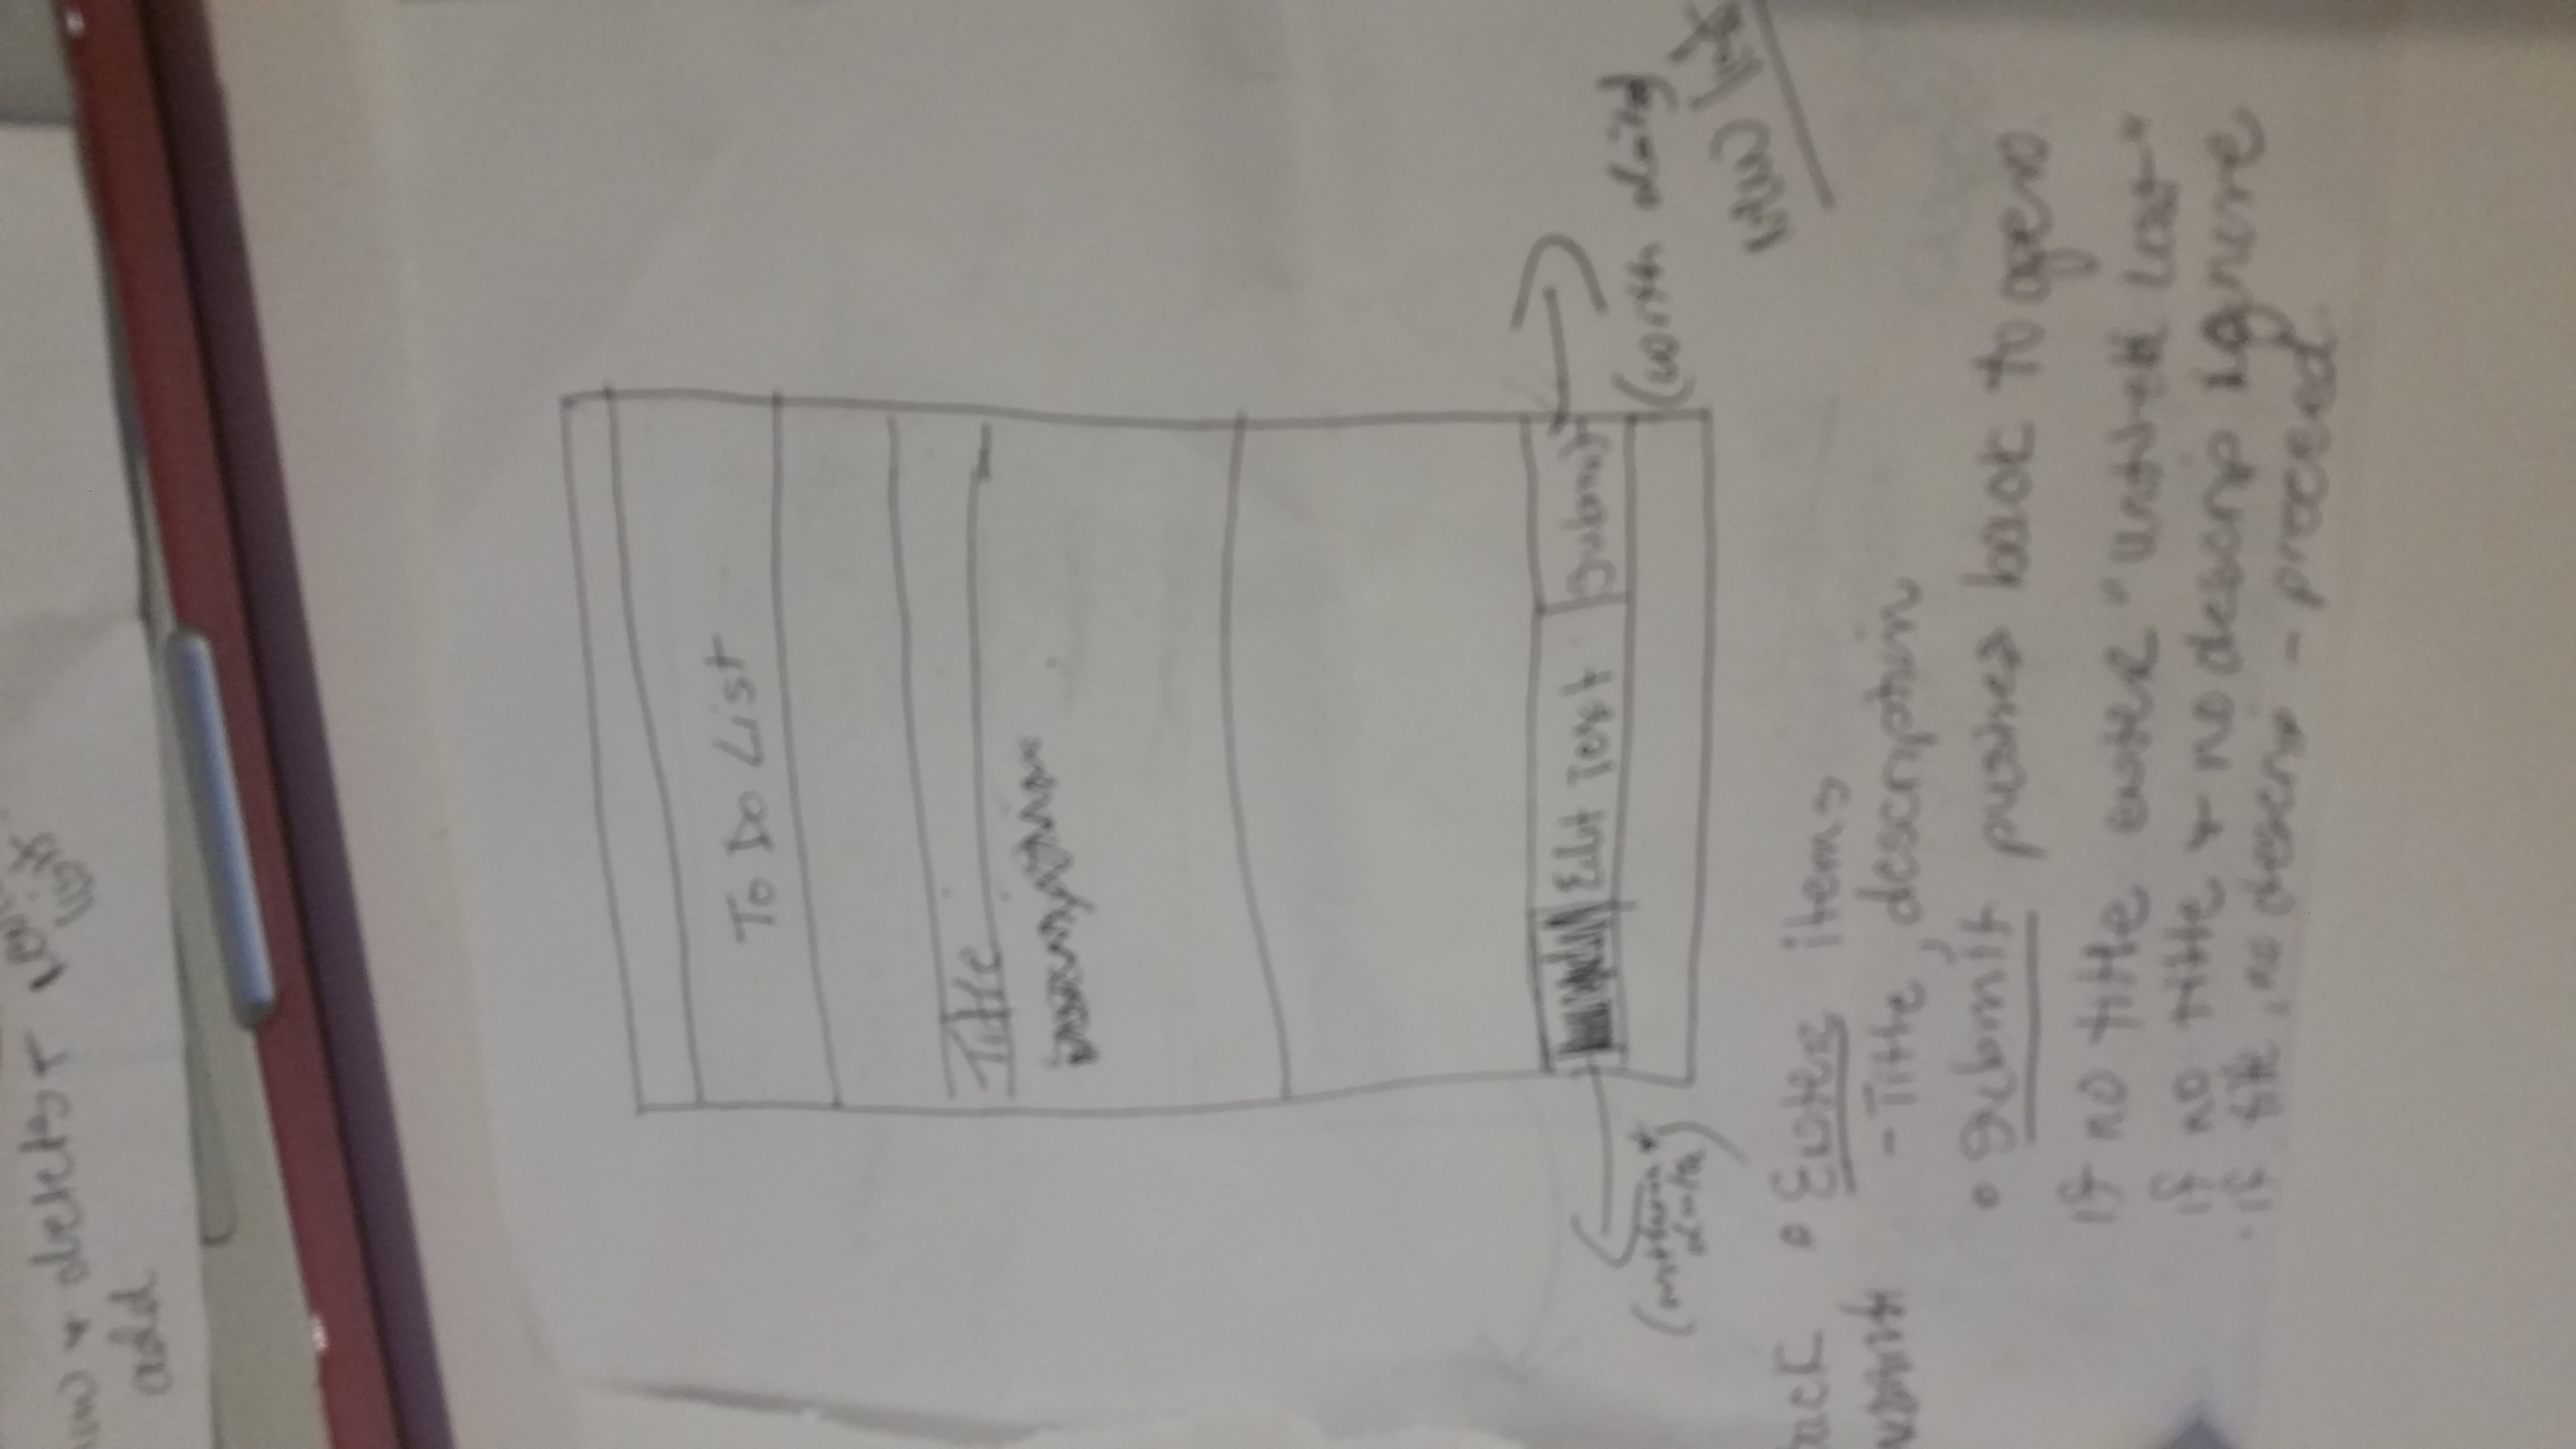 + delets +
list
add
To Do List
Title
Edit Text
Submit
(without
data)
(with data)
new list
back
• Enter items
- Title, description
• Submit pushes back to open
if no title enter "untitled List"
if no title + no descrip ignore
if title, no descrip - proceed